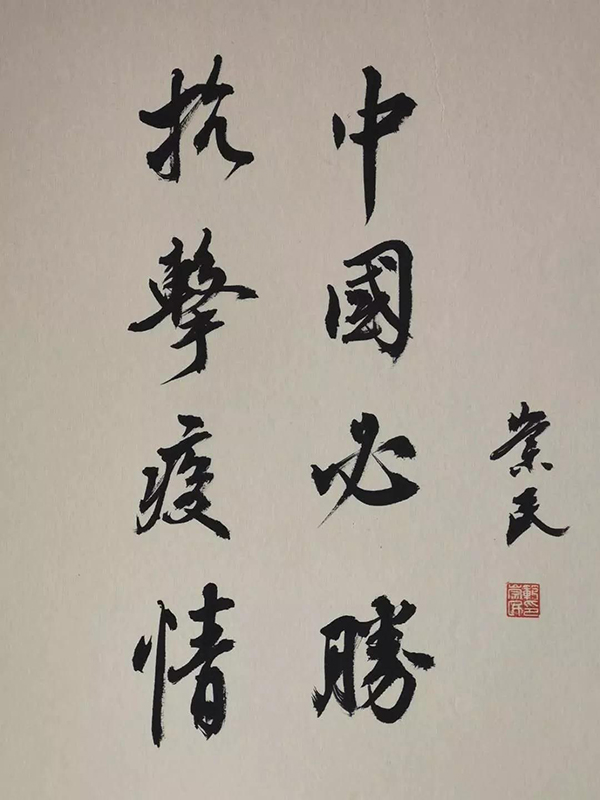 抗擊疫情
中國必勝
崇民